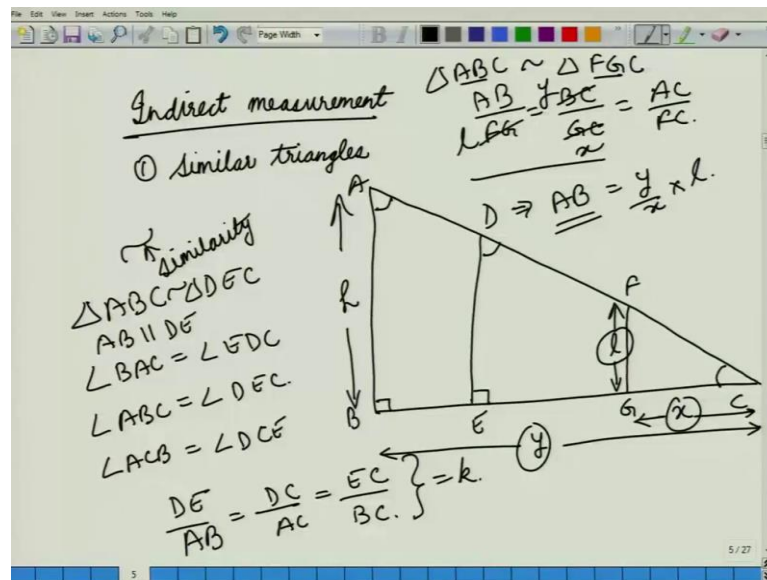 File Edit View Insert Actions Tools Help
Page Width
B I
Indirect measurement
① Similar triangles
△ABC ~ △FGC
AB/FG = BC/GC = AC/FC.
l y x
⇒ AB = y/x × l.
~ similarity
△ABC~△DEC
AB || DE
∠BAC = ∠EDC
∠ABC = ∠DEC.
∠ACB = ∠DCE
DE/AB = DC/AC = EC/BC. } = k.
A
D
F
h
l
B
E
G
x
C
y
5/27
5